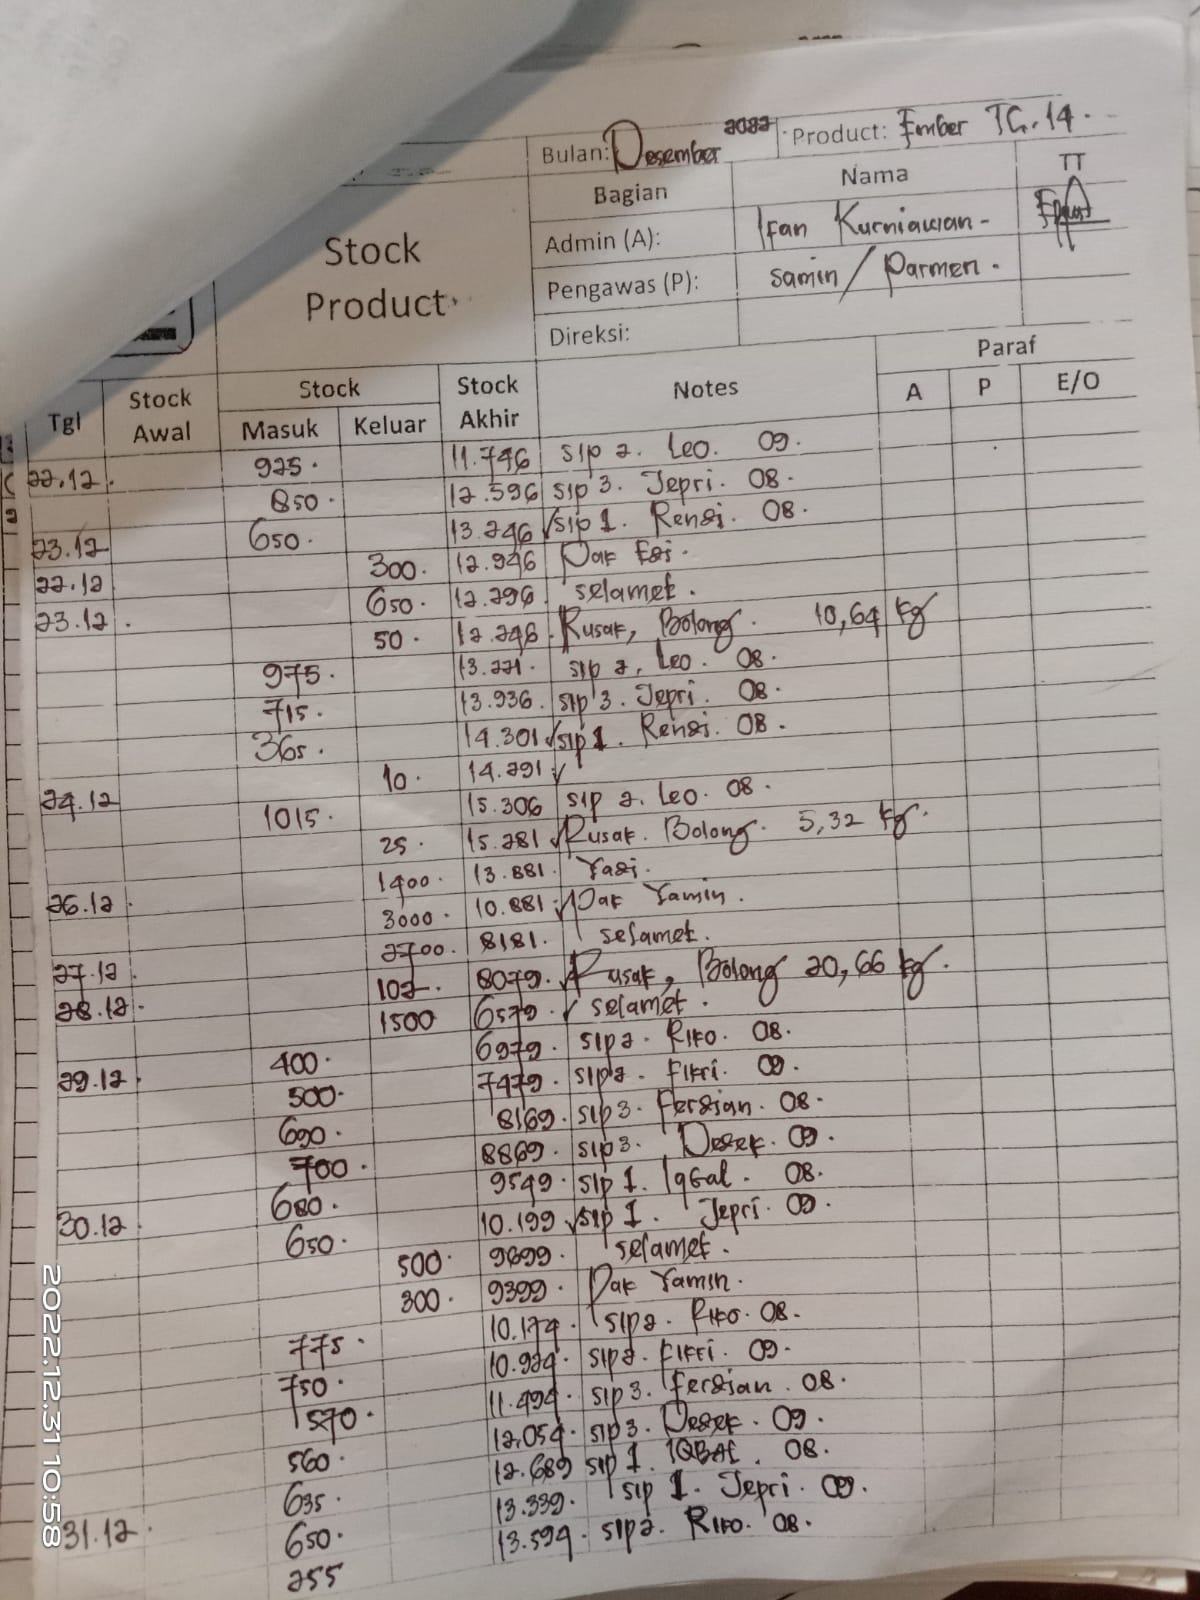 Bulan: Desember 2022 Product: Ember TG.14.
Stock Product
Bagian Nama TT
Admin (A): Ifan Kurniawan -
Pengawas (P): Samin / Parmen.
Direksi:
Tgl Stock Awal Stock Masuk Keluar Stock Akhir Notes Paraf A P E/O
22.12. 925. 11.746 sip 2. Leo. 09.
850. 12.596 sip 3. Jepri. 08.
23.12 650. 13.246 √ sip 1. Rensi. 08.
22.12 300. 12.946 Pak Edi.
23.12. 650. 12.296. selamet.
50. 12.246. Rusak, Bolong. 10,64 kg
975. 13.221. sip 2. Leo. 08.
715. 13.936. sip 3. Jepri. 08.
365. 14.301 √ sip 1. Rensi. 08.
24.12 10. 14.291 √
1015. 15.306 sip 2. Leo. 08.
25. 15.281 √ Rusak. Bolong. 5,32 kg.
26.12. 1400. 13.881. Yadi.
3000. 10.881. √ Pak Yamin.
27.12. 2700. 8181. selamet.
28.12. 102. 8079. √ Rusak, Bolong 20,66 kg.
1500 6579. √ selamet.
29.12. 400. 6979. sip 2. RIKO. 08.
500. 7479. sip 2. Fikri. 09.
690. 8169. sip 3. Ferdian. 08.
700. 8869. sip 3. Dedek. 09.
680. 9549. sip 1. Iqbal. 08.
30.12. 650. 10.199 √ sip 1. Jepri. 09.
500. 9699. selamet.
300. 9399. Pak Yamin.
775. 10.174. sip 2. RIKO. 08.
750. 10.924. sip 2. Fikri. 09.
570. 11.494. sip 3. Ferdian. 08.
560. 12.054. sip 3. Dedek. 09.
635. 12.689 sip 1. IQBAL. 08.
31.12. 650. 13.339. sip 1. Jepri. 09.
255 13.594. sip 2. RIKO. 08.
2022.12.31 10:58